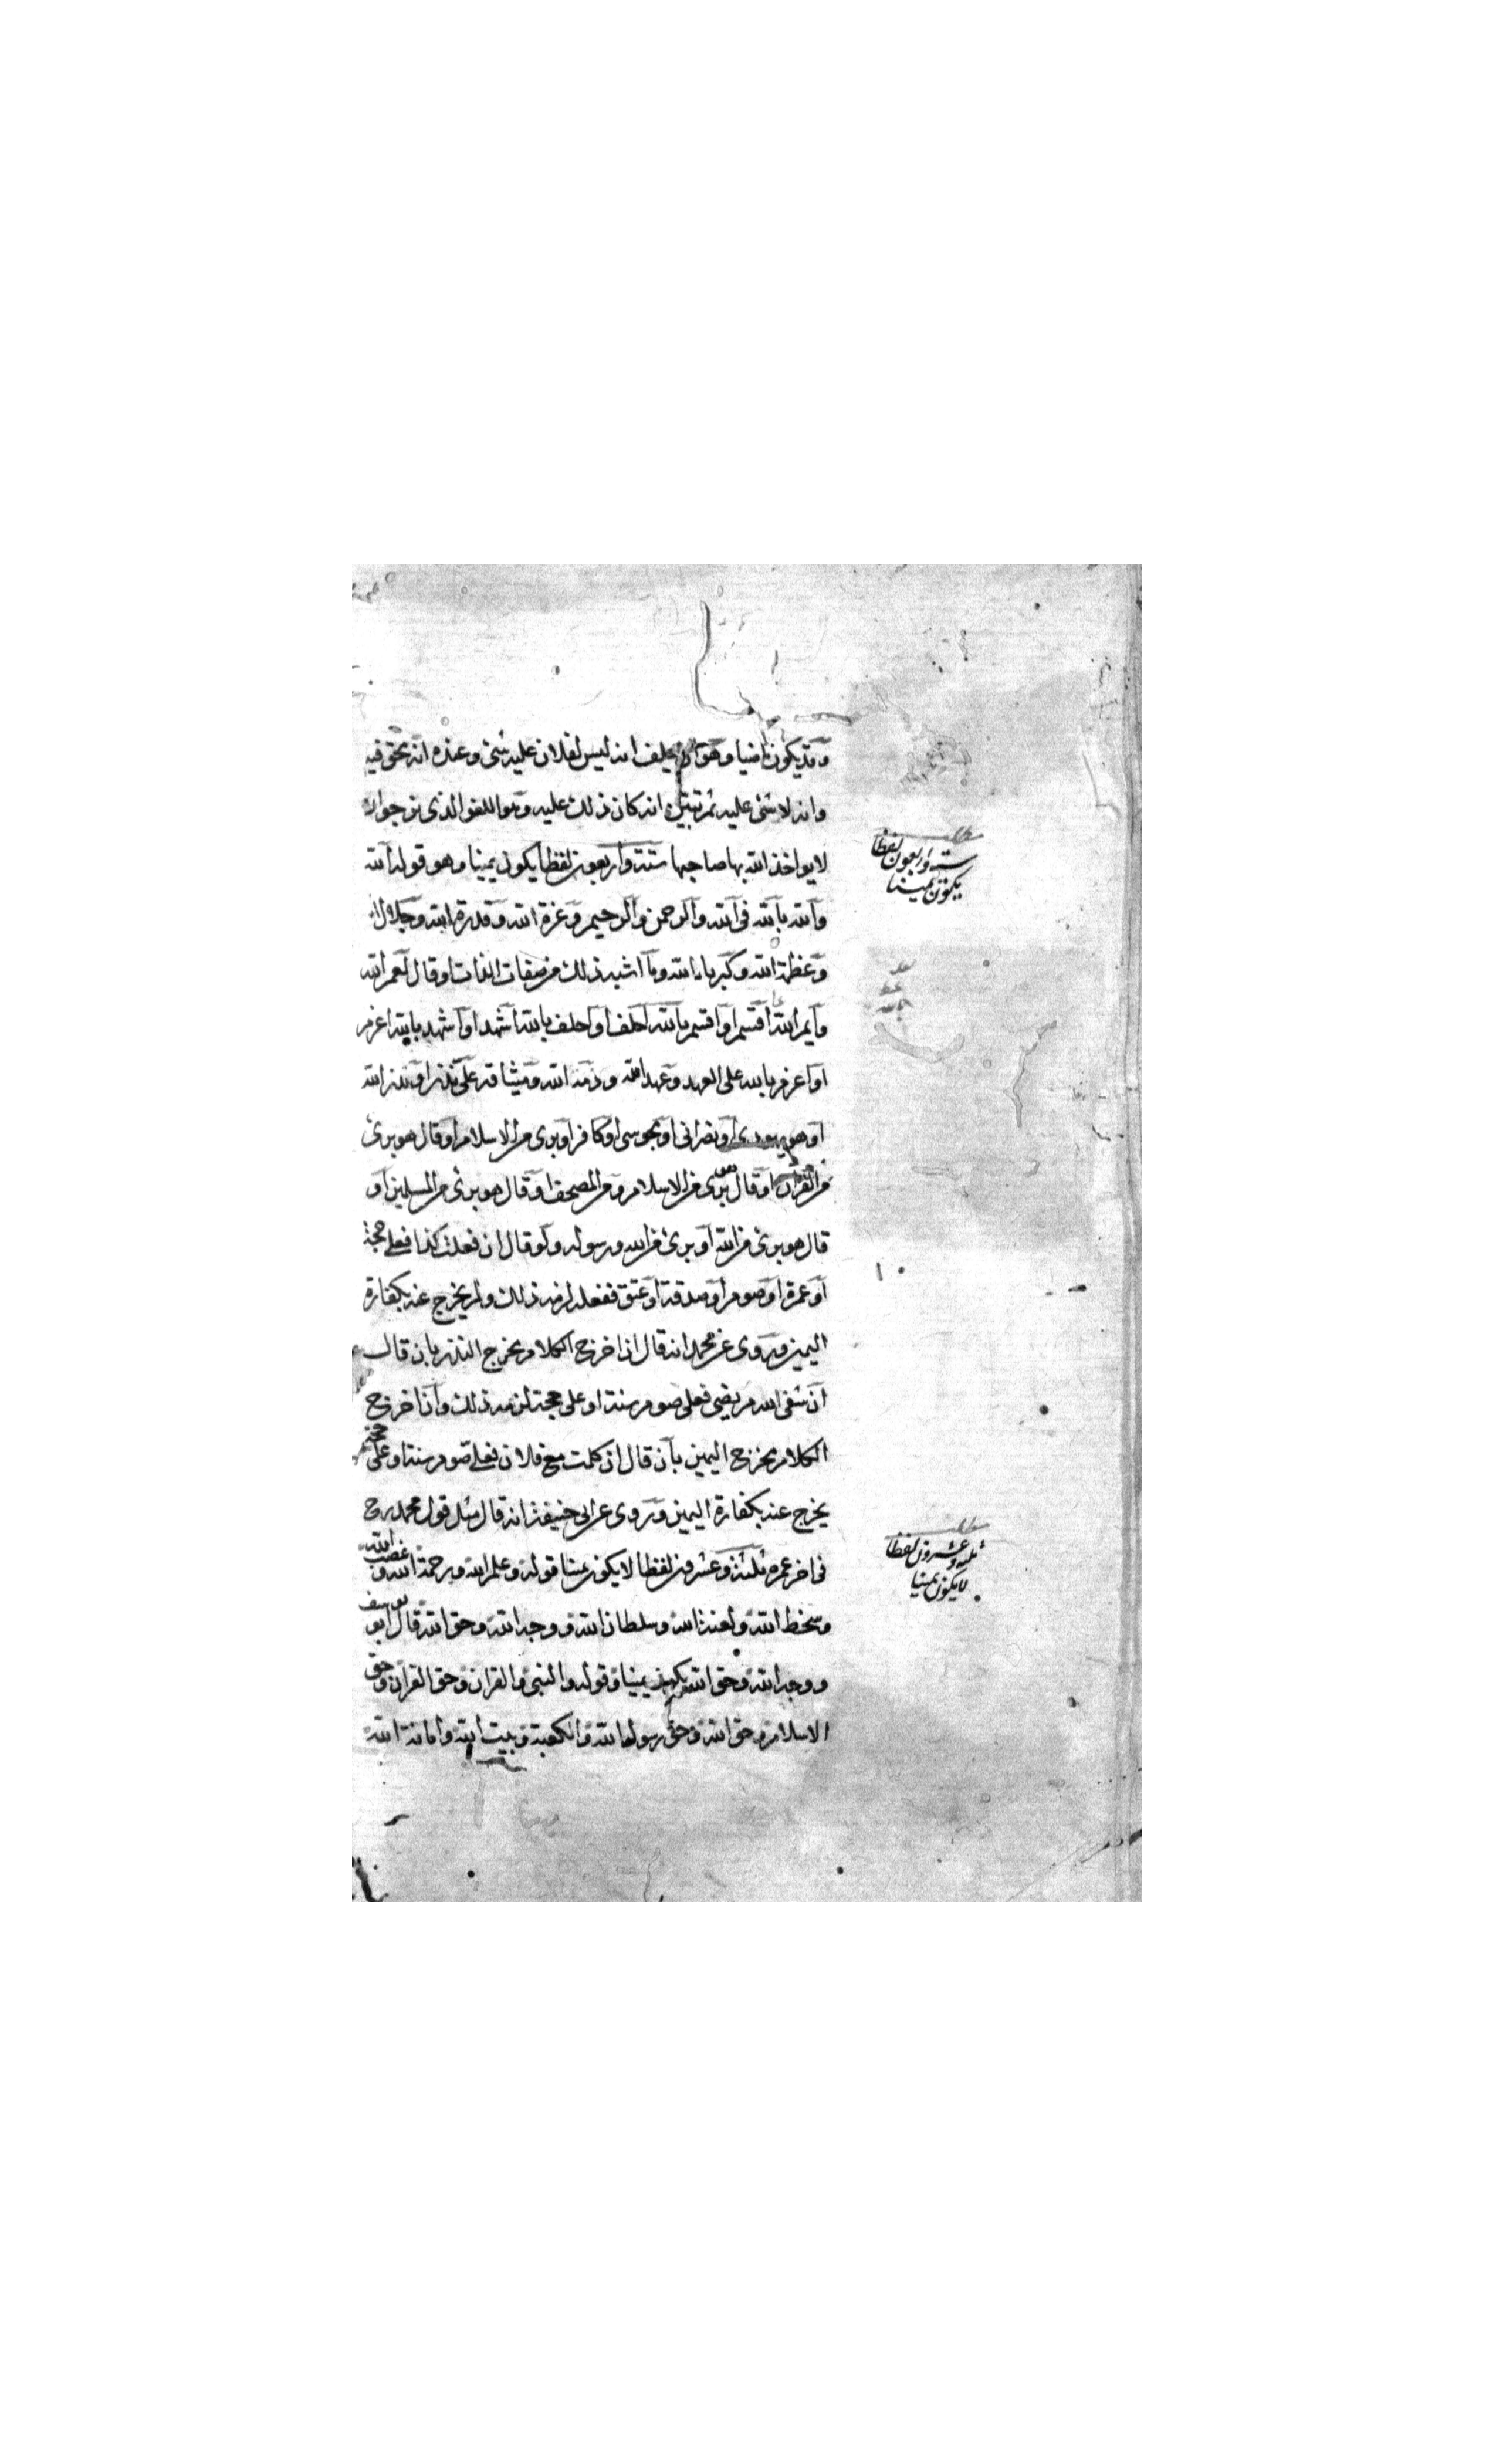 وقد يكون ماضيا وهو ان يحلف انه ليس لفلان عليه شئ وعنده انه محق فيه
وانه لا شئ عليه ثم تبين انه كان ذلك عليه وهو اللغو الذى نرجوا ان
لا يواخذ الله بها صاحبها ستة واربعون لفظا يكون يمينا وهو قوله الله
والله بالله فى الله والرحمن والرحيم وعزة الله وقدرة الله وجلال الله
وعظمة الله وكبرياء الله وما اشبه ذلك من صفات الذات او قال لعمر الله
وايم الله اقسم او اقسم بالله احلف او احلف بالله اشهد او اشهد بالله اعزم
او اعزم بالله على العهد وعهد الله وذمة الله وميثاقه على نذر او نذر الله
او هو يهودى او نصرانى او مجوسى او كافر او برى من الاسلام او قال هو برئ
من القران او قال برى من الاسلام ومن المصحف او قال هو برئ من المسلمين او
قال هو برئ من الله او برئ من الله ورسوله ولو قال ان فعلت كذا فعلى حجة
او عمرة او صوم او صدقة او عتق ففعله لزمه ذلك ولم يخرج عنه بكفارة
اليمين وروى عن محمد انه قال اذا خرج الكلام مخرج النذر بان قال
ان شفى الله مريضى فعلى صوم سنة او على حجة لزمه ذلك واذا خرج
الكلام مخرج اليمين بان قال ان كلمت مع فلان فعلى صوم سنة او على حجة
يخرج عنه بكفارة اليمين وروى عن ابى حنيفة انه قال مثل قول محمد رح
فى اخر عمره ثلثة وعشرون لفظا لا يكون يمينا قوله وعلم الله ورحمة الله وغضب الله
وسخط الله ولعنة الله وسلطان الله ووجه الله وحق الله قال ابو يوسف
ووجه الله وحق الله يكون يمينا وقوله والنبى والقران وحق القران وحق
الاسلام وحق الله وحق رسول الله والكعبة وبيت الله وامانة الله
مطلب
ستة واربعون لفظا
يكون يمينا
مطلب
ثلثة وعشرون لفظا
لا يكون يمينا